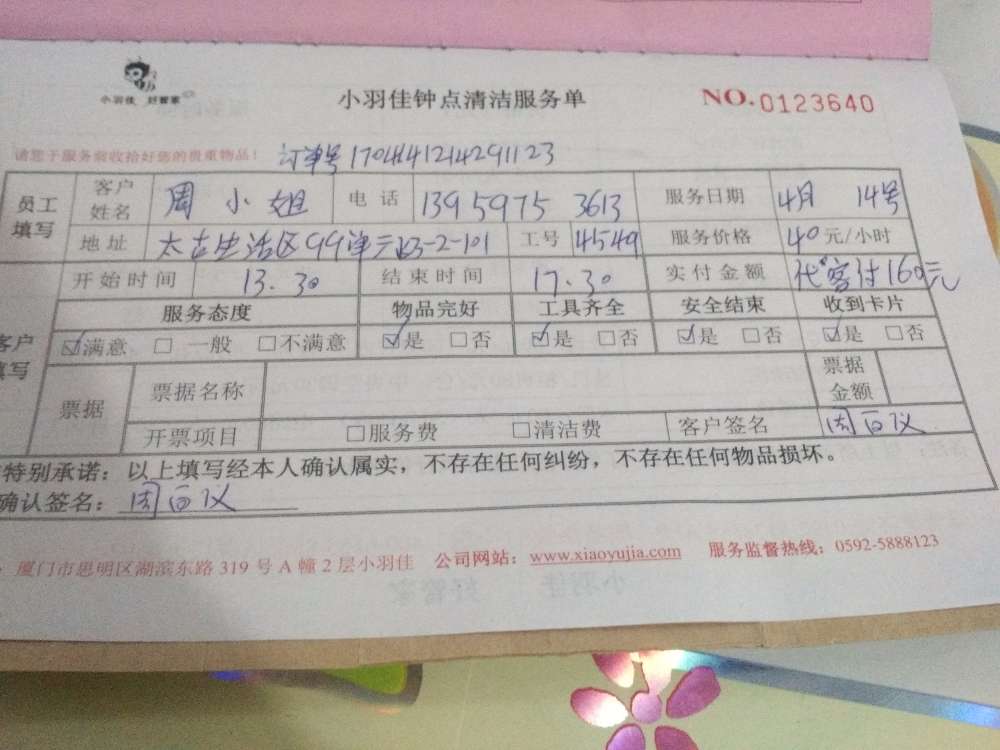 小羽佳 好管家
小羽佳钟点清洁服务单
NO.0123640
请您于服务前收拾好您的贵重物品！ 订单号1704141214291123
员工填写 客户姓名 周小姐 电话 13959753613 服务日期 4月 14号
地址 太古生活区99 3-2-101 工号 4549 服务价格 40元/小时
客户填写 开始时间 13.30 结束时间 17.30 实付金额 代客付160元
服务态度 物品完好 工具齐全 安全结束 收到卡片
☑满意 □一般 □不满意 ☑是 □否 ☑是 □否 ☑是 □否 ☑是 □否
票据 票据名称 票据金额
开票项目 □服务费 □清洁费 客户签名 周
特别承诺：以上填写经本人确认属实，不存在任何纠纷，不存在任何物品损坏。
确认签名：周
厦门市思明区湖滨东路319号A幢2层小羽佳 公司网站：www.xiaoyujia.com 服务监督热线：0592-5888123